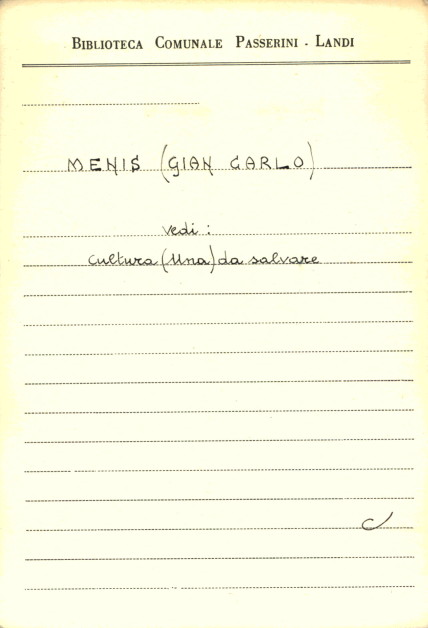 BIBLIOTECA COMUNALE PASSERINI - LANDI
MENIS (GIAN CARLO)
vedi :
Cultura (Una) da salvare